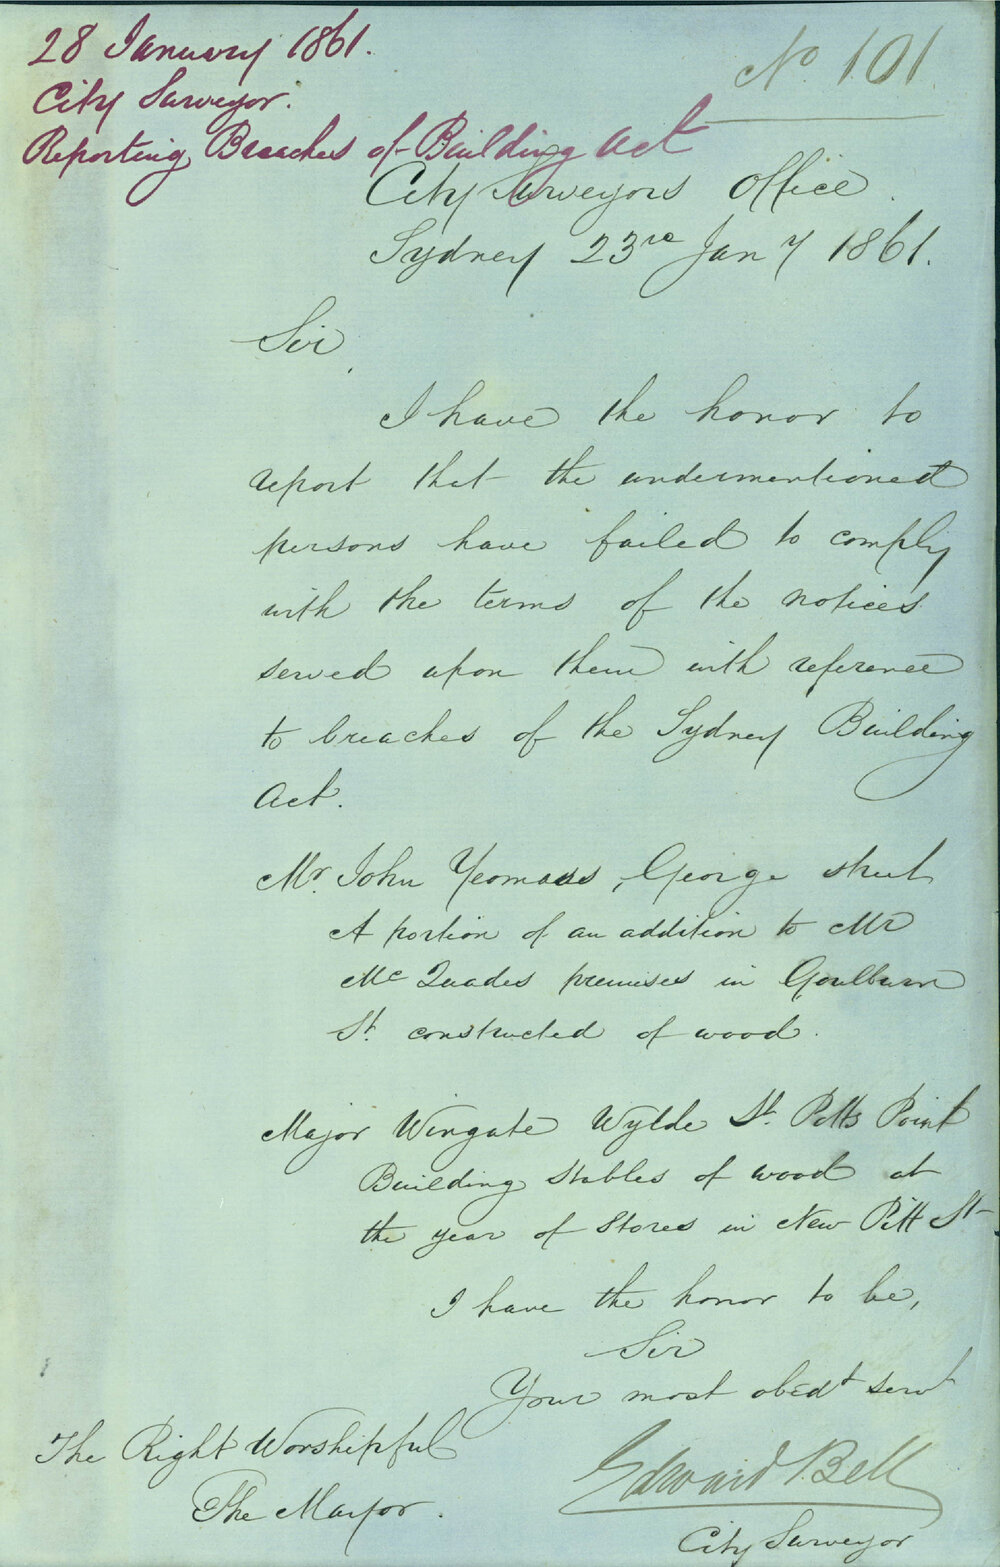 28 January 1861.
City Surveyor.
Reporting Breaches of Building Act
No 101
City Surveyors Office.
Sydney 23rd Jany 1861.
Sir,
I have the honor to
report that the undermentioned
persons have failed to comply
with the terms of the notices
served upon them with reference
to breaches of the Sydney Building
Act.
Mr. John Yeomans, George street
A portion of an addition to Mr
McQuades premises in Goulburn
St. constructed of wood.
Major Wingate Wylde St. Potts Point
Building stables of wood at
the year of Stores in New Pitt St-
I have the honor to be,
Sir
Your most obedt servt
Edward Bell
City Surveyor
The Right Worshipful
The Mayor.